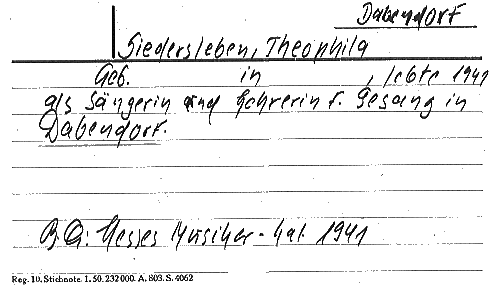 Dabendorf
Siedersleben, Theophila
Geb. in , lebte 1941
als Sängerin und Lehrerin f. Gesang in
Dabendorf.
B. Q: Hesses Musiker-Kal 1941
Reg. 10. Stichnote. 1. 50. 232 000. A. 803. S. 4062